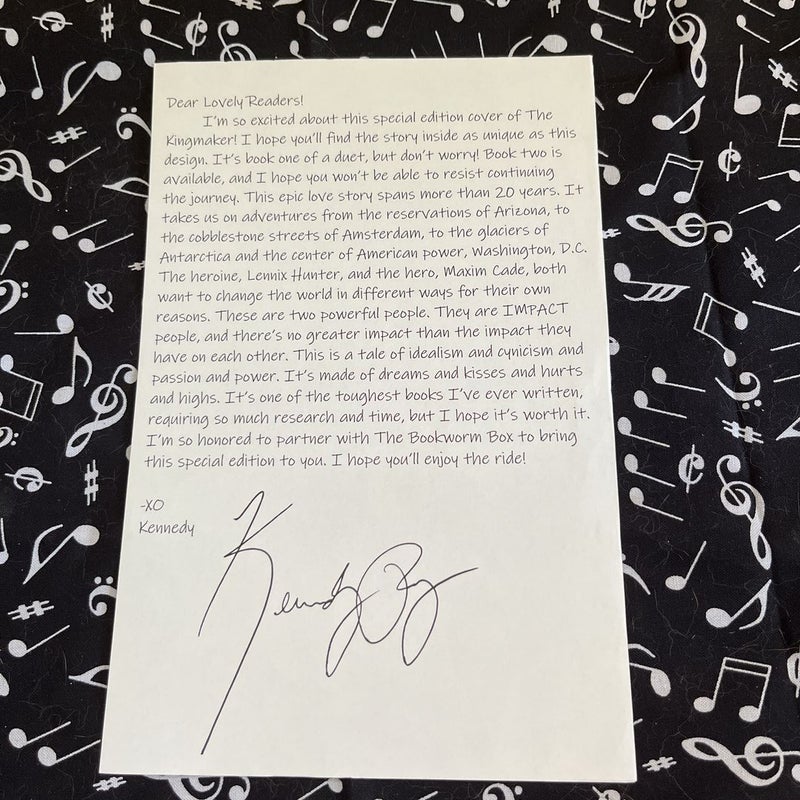 Dear Lovely Readers!
I'm so excited about this special edition cover of The
Kingmaker! I hope you'll find the story inside as unique as this
design. It's book one of a duet, but don't worry! Book two is
available, and I hope you won't be able to resist continuing
the journey. This epic love story spans more than 20 years. It
takes us on adventures from the reservations of Arizona, to
the cobblestone streets of Amsterdam, to the glaciers of
Antarctica and the center of American power, Washington, D.C.
The heroine, Lennix Hunter, and the hero, Maxim Cade, both
want to change the world in different ways for their own
reasons. These are two powerful people. They are IMPACT
people, and there's no greater impact than the impact they
have on each other. This is a tale of idealism and cynicism and
passion and power. It's made of dreams and kisses and hurts
and highs. It's one of the toughest books I've ever written,
requiring so much research and time, but I hope it's worth it.
I'm so honored to partner with The Bookworm Box to bring
this special edition to you. I hope you'll enjoy the ride!
-XO
Kennedy
Kennedy Ry